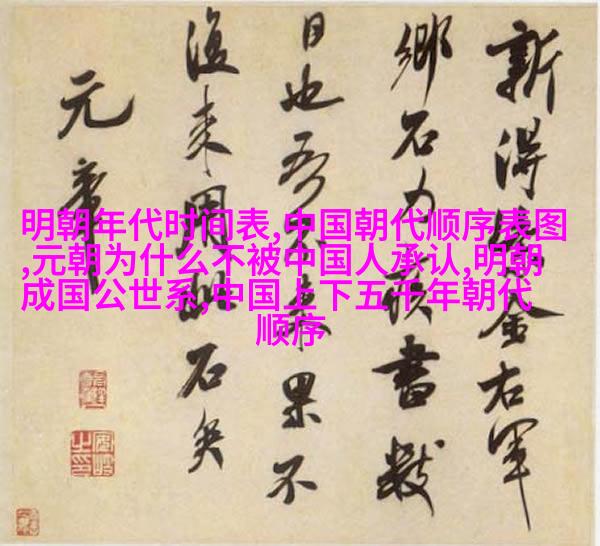 明朝年代时间表,中国朝代顺序表图
,元朝为什么不被中国人承认,明朝
成国公世系,中国上下五千年朝代
顺序
新得紫金右軍
鄉石力疾書數
日也吾不來果不
復來用此石矣
元章